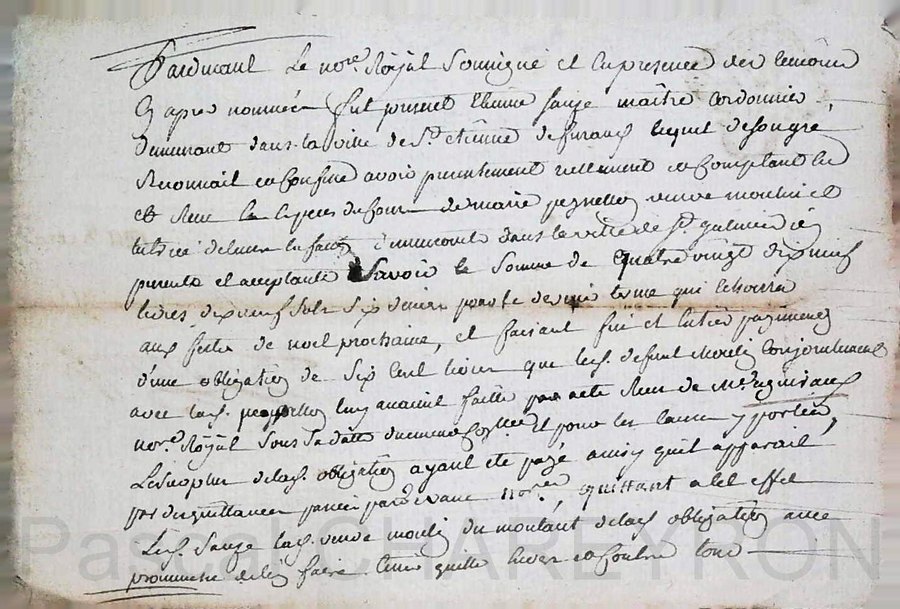 Pardevant Le no.re Royal Soussigné et En presence des temoins
Cy apres nommés fut present Etienne Sauze maitre Cordonnier
demeurant dans la ville de S.t etienne de furans lequel de son gré
Reconnait et Confesse avoir presentement reellement et Comptant
et Reçu En Especes de Cour de marie veuve moulin et
tutrice de leurs Enfans demeurante dans la ville de S.t galmier icy
presente et acceptante Savoir la Somme de quatre vingt dix neuf
livres dix neuf Sols Six deniers pour le dernier terme qui Echoira
aux festes de noel prochaine, et faisant fin et Entier payement
d'une obligation de Six Cent livres que led. defunt Moulin Conjointement
avec lad. luy avoient faitte par acte Reçu de M.e
no.re Royal Sous Sa datte Et pour les Causes y portées,
Le Surplus de lad. obligation ayant été payé ainsy qu'il apparait
par des quittances passées pardevant no.re, quittant a cet effet
Led. Sauze lad. veuve moulin du montant de lad. obligation avec
promesse de les faire tenir quitte Envers et Contre tous
Pascal CHAREYRON